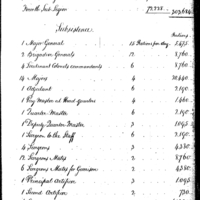 Fourth Sub Legion 77.778 303,684
Subsistence.
Rations
1 Major General 15 Rations per day 5,475
2 Brigadier Generals 8,760
4 Lieutenant Colonels commandants 6 8,760
14 Majors 4 20,440
1 Adjutant 6 2,190
1 Pay Master at Head quarters 4 1,460
1 Quarter Master 6 2,190
1 Deputy Quarter Master 3 1095
1 Surgeon to the Staff 6 2,190
4 Surgeons 3
12 Surgeons Mates 2 8,760
6 Surgeons Mates for Garrison 2
1 Principal Artificer 3 1095
1 Second Artificer 2 730